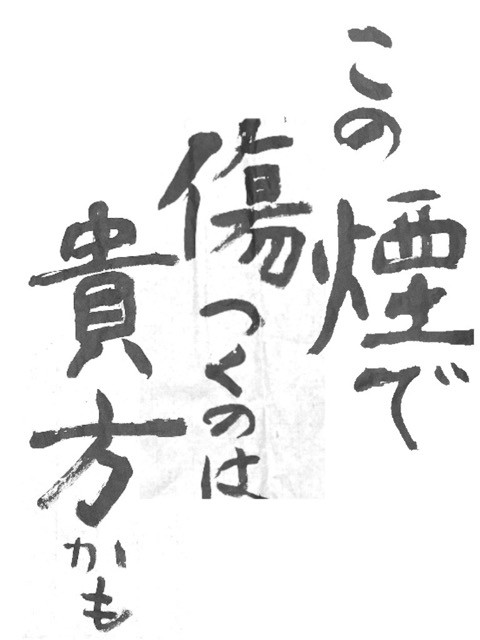 この煙で
傷つくのは
貴方かも